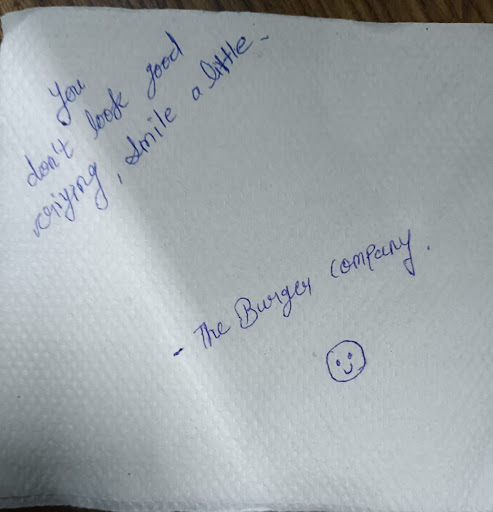 You
don't look good
criying, smile a little-
- The Burger Company.